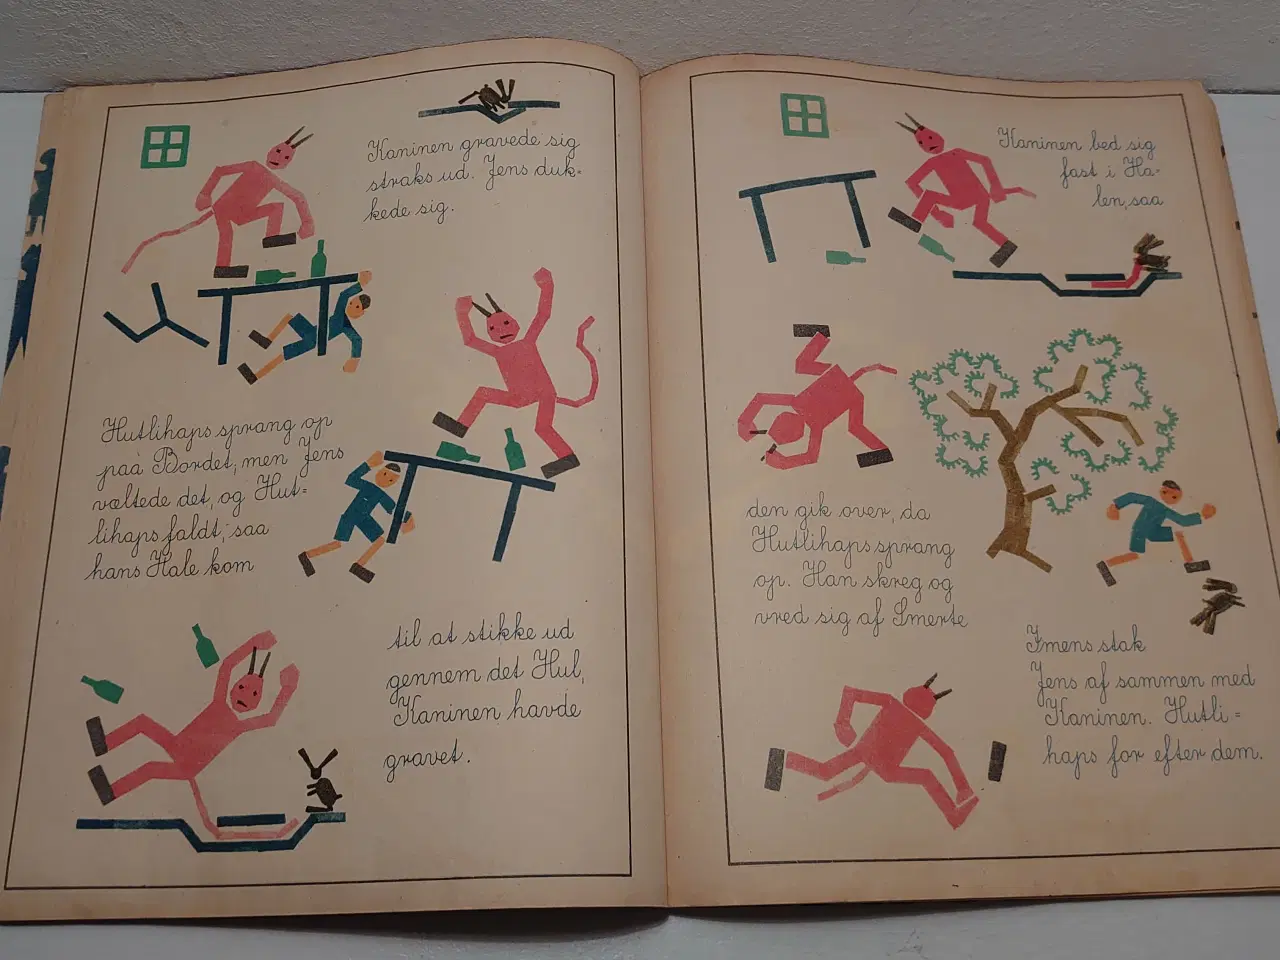 Kaninen gravede sig
straks ud. Jens duk-
kede sig.
Hutlihaps sprang op
paa Bordet; men Jens
væltede det, og Hut-
lihaps faldt; saa
hans Hale kom
til at stikke ud
gennem det Hul,
Kaninen havde
gravet.
Kaninen bed sig
fast i Ha-
len, saa
den gik over, da
Hutlihaps sprang
op. Han skreg og
vred sig af Smerte
Imens stak
Jens af sammen med
Kaninen. Hutli-
haps for efter dem.